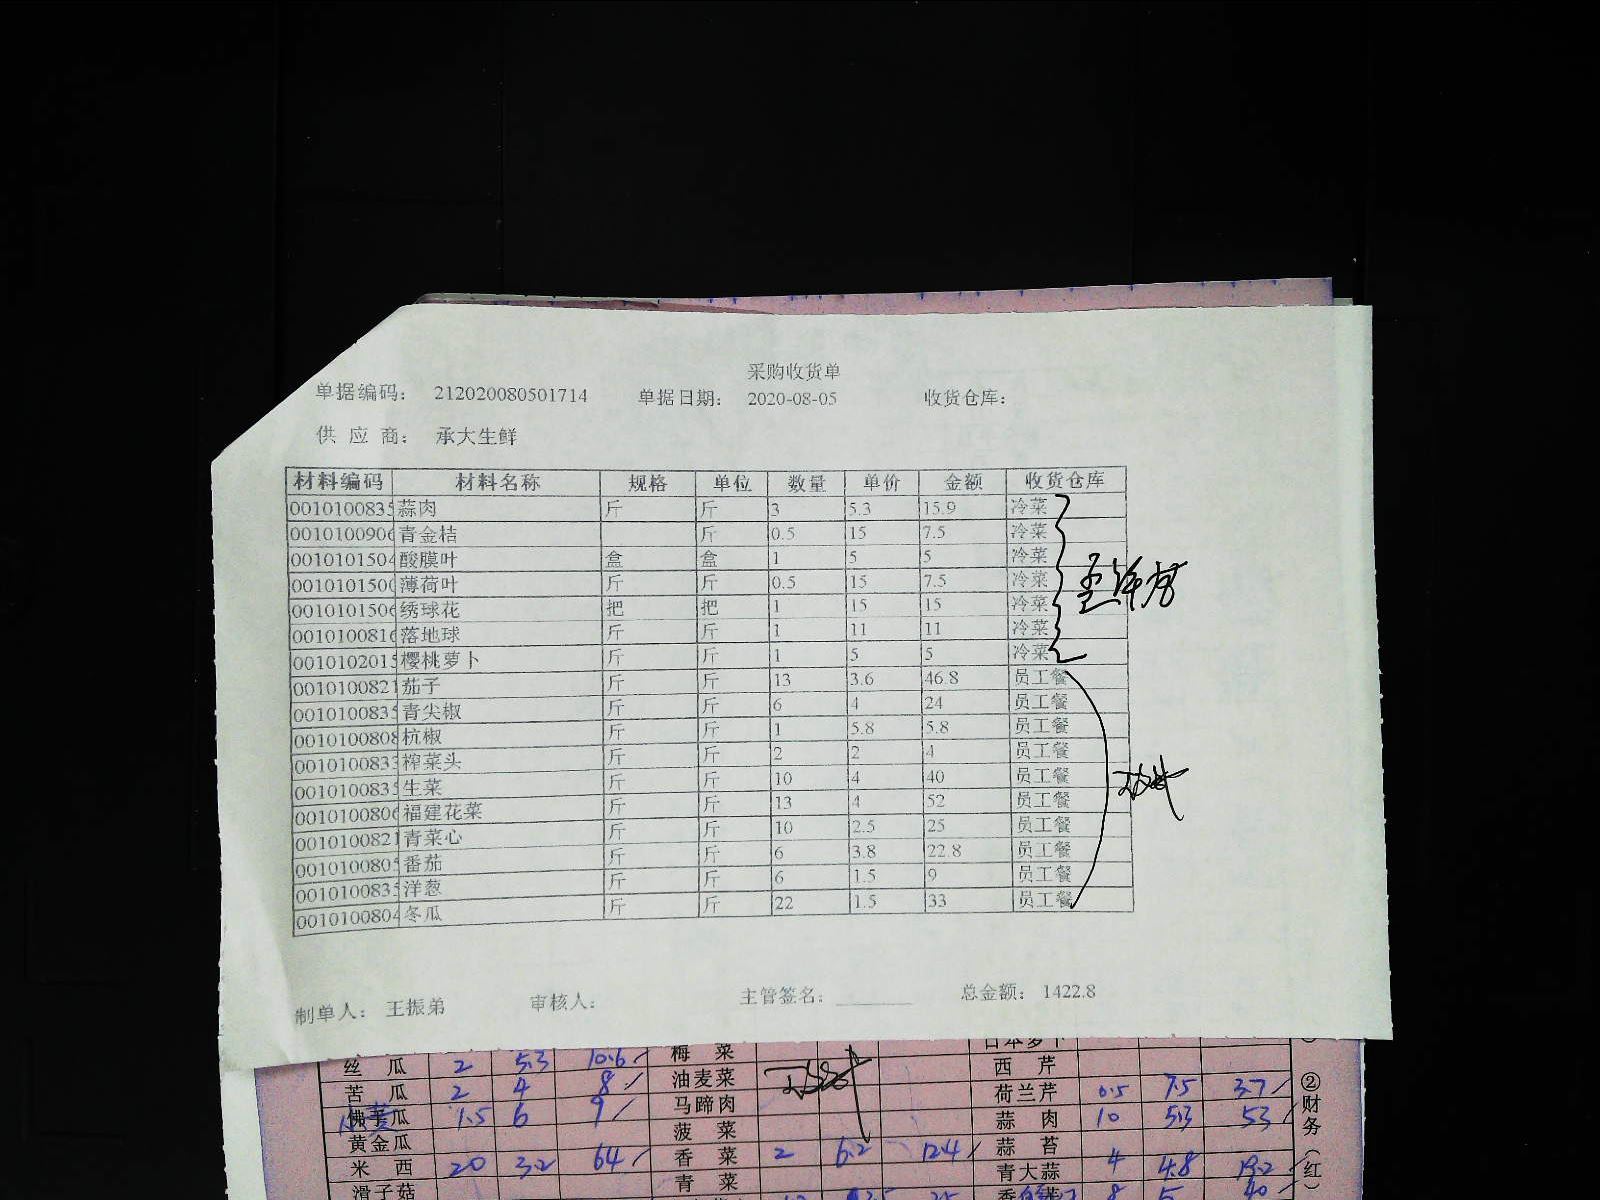 采购收货单
单据编码： 212020080501714 单据日期： 2020-08-05 收货仓库：
供 应 商： 承大生鲜
材料编码 材料名称 规格 单位 数量 单价 金额 收货仓库
0010100835 蒜肉 斤 斤 3 5.3 15.9 冷菜
0010100906 青金桔 斤 0.5 15 7.5 冷菜
0010101504 酸膜叶 盒 盒 1 5 5 冷菜
0010101500 薄荷叶 斤 斤 0.5 15 7.5 冷菜
0010101506 绣球花 把 把 1 15 15 冷菜
0010100816 落地球 斤 斤 1 11 11 冷菜
0010102015 樱桃萝卜 斤 斤 1 5 5 冷菜
0010100821 茄子 斤 斤 13 3.6 46.8 员工餐
0010100835 青尖椒 斤 斤 6 4 24 员工餐
0010100808 杭椒 斤 斤 1 5.8 5.8 员工餐
0010100833 榨菜头 斤 斤 2 2 4 员工餐
0010100835 生菜 斤 斤 10 4 40 员工餐
0010100806 福建花菜 斤 斤 13 4 52 员工餐
0010100821 青菜心 斤 斤 10 2.5 25 员工餐
0010100805 番茄 斤 斤 6 3.8 22.8 员工餐
0010100835 洋葱 斤 斤 6 1.5 9 员工餐
0010100804 冬瓜 斤 斤 22 1.5 33 员工餐
制单人： 王振弟 审核人： 主管签名： 总金额： 1422.8
丝瓜 2 5.3 10.6 梅菜 日本萝卜
苦瓜 2 4 8 油麦菜 西芹
佛手瓜 1.5 6 9 马蹄肉 荷兰芹 0.5 7.5 3.7
黄金瓜 菠菜 蒜肉 10 5.3 53
米西 20 3.2 64 香菜 2 6.2 12.4 蒜苔
滑子菇 青菜 青大蒜 4 4.8 19.2
8 5 40
②财务（红）